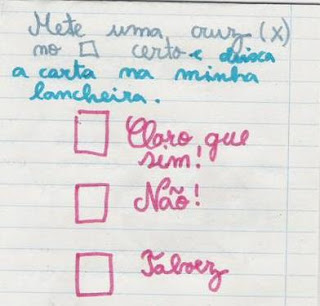 Mete uma cruz (x)
no □ certo e deixa
a carta na minha
lancheira.
□ Claro que
sim!
□ Não!
□ Talvez